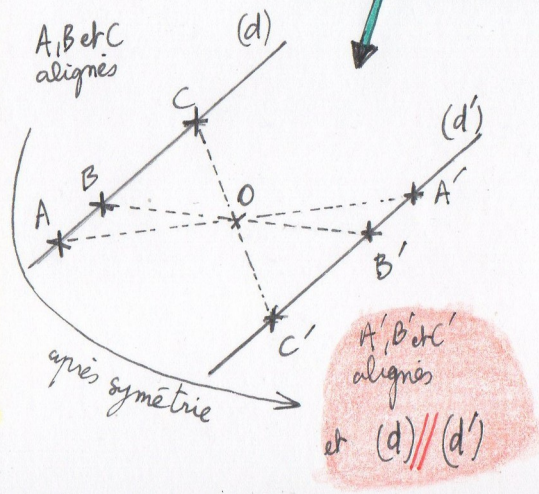 A, B et C
alignés
(d)
C
(d')
B
A
O
A'
B'
C'
après symétrie
A', B' et C'
alignés
et (d) // (d')